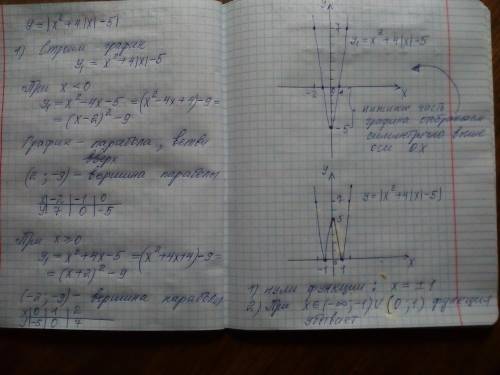 y = |x² + 4|x| - 5|
1) Строим график
y₁ = x² + 4|x| - 5
При x < 0
y₁ = x² - 4x - 5 = (x² - 4x + 4) - 9 =
= (x - 2)² - 9
График - парабола, ветви
вверх
(2; -9) - вершина параболы
x -2 -1 0
y 7 0 -5
При x ≥ 0
y₁ = x² + 4x - 5 = (x² + 4x + 4) - 9 =
= (x + 2)² - 9
(-2; -9) - вершина параболы
x 0 1 2
y -5 0 7
y
7
y₁ = x² + 4|x| - 5
-2 0 1 x
-5
нижнюю часть
графика отображаем
симметрично выше
оси OX
y
7
y = |x² + 4|x| - 5|
5
-1 1 x
1) нули функции: x = ± 1
2) При x ∈ (-∞; -1) ∪ (0; 1) функция
убывает